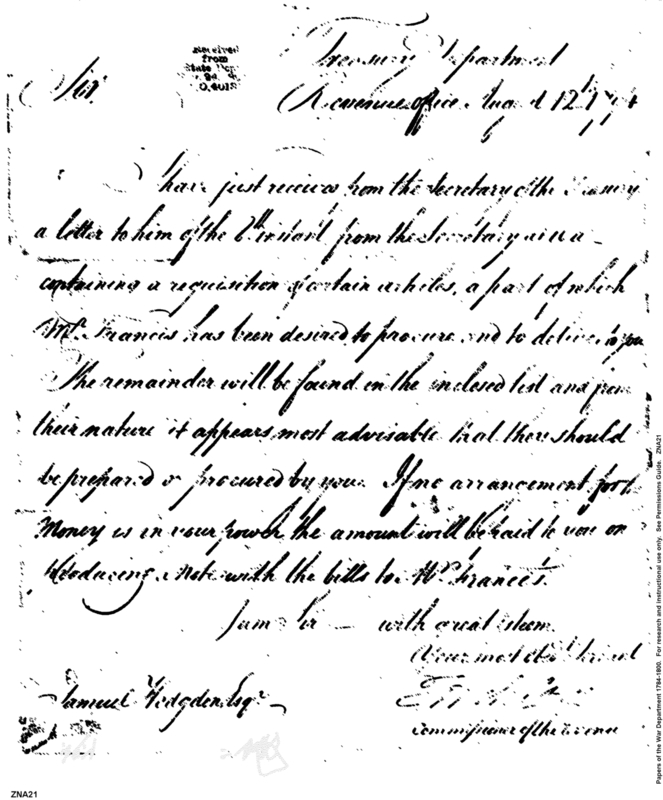 Received
from
State Dep
Treasury Department
Sir
Revenue office August 12th 1794
I have just received from the Secretary of the Treasury
a letter to him of the 6th instant from the Secretary
containing a requisition of certain articles, a part of which
Mr. Francis has been desired to procure and to deliver to you
The remainder will be found in the inclosed list and from
their nature it appears most advisable that they should
be prepared or procured by you. If no arrangement for
Money is in your power the amount will be paid to you on
producing a Note with the bills to Mr. Francis.
I am Sir with great esteem
Your most Obt. Servant
Samuel Hodgden Esqr.
Commissioner of the Revenue
Papers of the War Department 1784-1800. For research and instructional use only. See Permissions Guide. ZNA21
ZNA21